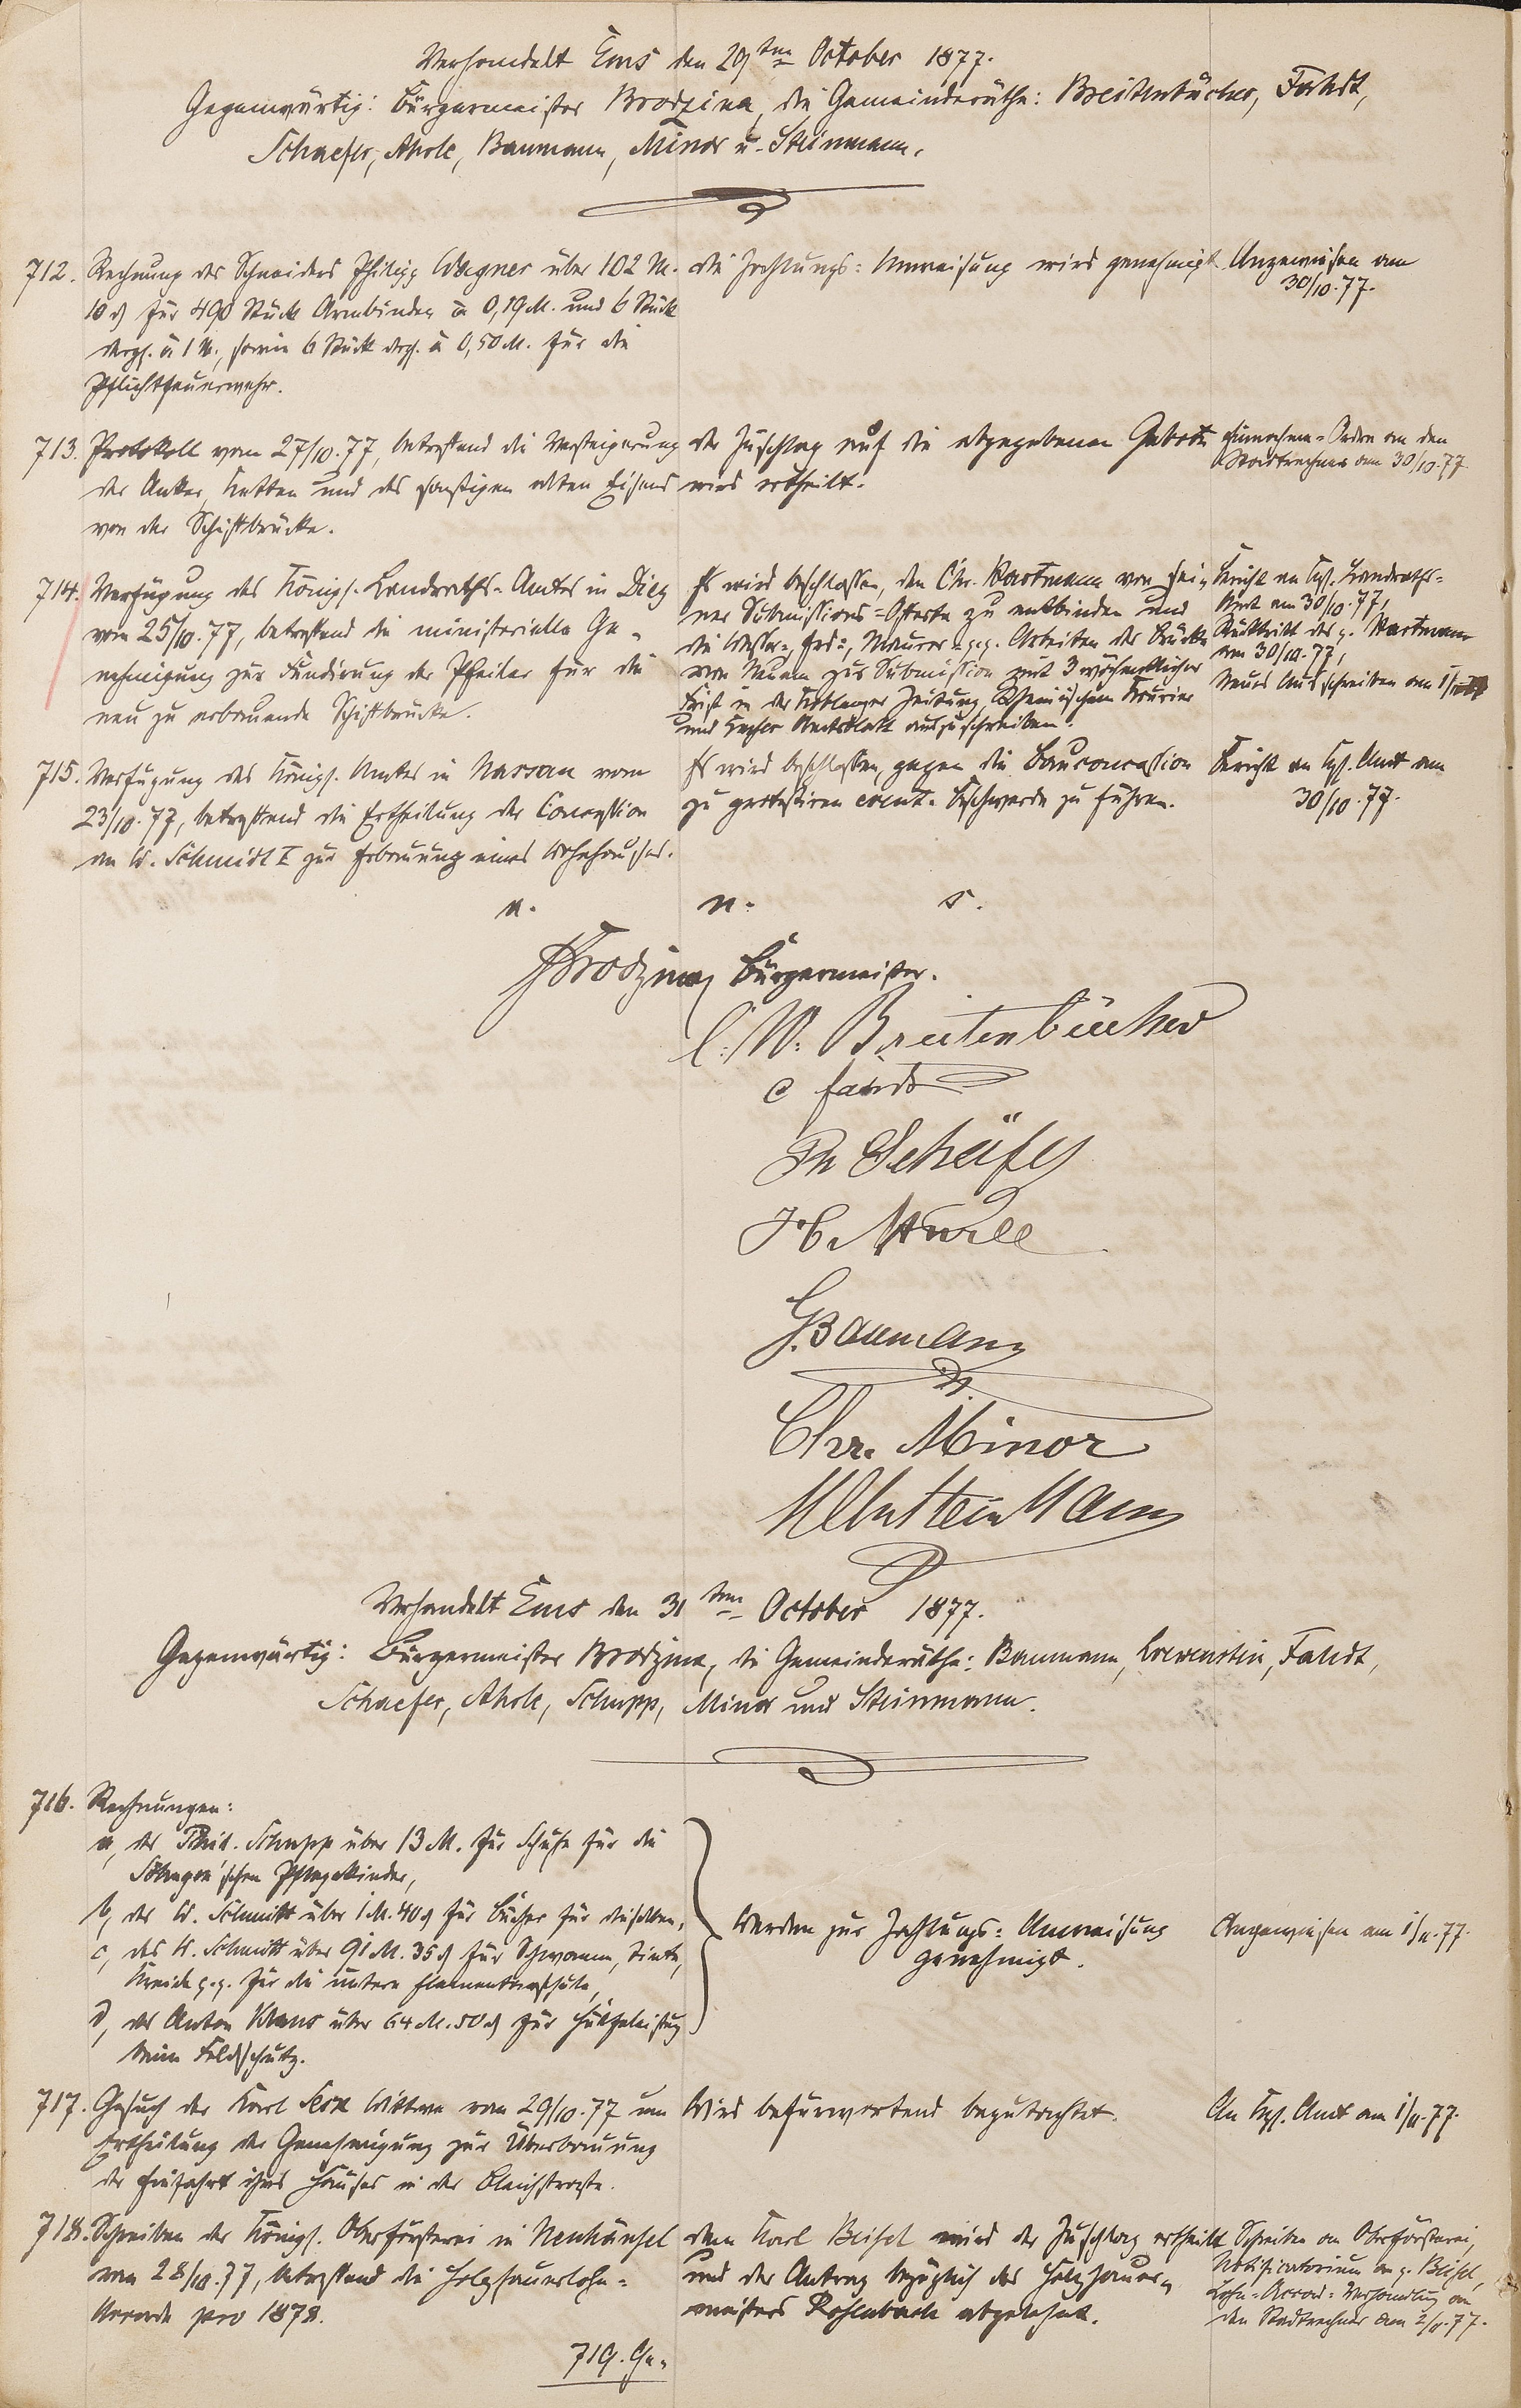 Verhandelt Ems den 29ten October 1877.
Gegenwärtig: Bürgermeister Brodzina, die Gemeinderäthe: Breitenbücher, Fahdt,
Schaefer, Ahrle, Baumann, Minor u. Steinmann.
712. Rechnung des Schneiders Philipp Wagner über 102 M.
10 ₰ für 490 Stück Armbinden à 0,19 M. und 6 Stück
dergl. à 1 M., sowie 6 Stück dergl. à 0,50 M. für die
Pflichtfeuerwehr.
die Zahlungs-Anweisung wird genehmigt.
Angewiesen am
30/10.77.
713. Protokoll vom 27/10.77, betreffend die Versteigerung
der Anker, Ketten und des sonstigen alten Eisens
von der Schiffbrücke.
der Zuschlag auf die abgegebenen Gebote
wird ertheilt.
Einnahme-Ordre an den
Stadtrechner am 30/10.77.
714. Verfügung des Königl. Landraths-Amtes in Diez
vom 25/10.77, betreffend die ministerielle Ge-
nehmigung zur Fundirung der Pfeiler für die
neu zu erbauende Schiffbrücke.
Es wird beschlossen, den Chr. Hartmann von sei-
ner Submissions-Offerte zu entbinden und
die Wasser-, Erd-, Maurer- p.p. Arbeiten der Brücke
von Neuem zur Submission mit 3 wöchentlicher
Frist in der Koblenzer Zeitung, Rheinischen Kourier
und Emser Amtsblatt auszuschreiben.
Bericht an Kgl. Landraths-
Amt am 30/10.77,
Rücktritt des p. Hartmann
am 30/10.77,
Neues Ausschreiben am 1/11.77
715. Verfügung des Königl. Amtes in Nassau vom
23/10.77, betreffend die Ertheilung der Concession
an W. Schmidt I zur Erbauung eines Wohnhauses.
Es wird beschlossen, gegen die Bauconcession
zu protestiren event. Beschwerde zu führen.
Bericht an Kgl. Amt am
30/10.77.
u. n. s.
Brodzina Bürgermeister.
C. W. Breitenbücher
C Fahdt
Ph Schäfer
H. Ahrle
G. Baumann
Chr. Minor
Steinmann
Verhandelt Ems den 31ten October 1877.
Gegenwärtig: Bürgermeister Brodzina, die Gemeinderäthe: Baumann, Loewenstein, Fahdt,
Schaefer, Ahrle, Schupp, Minor und Steinmann.
716. Rechnungen:
a, der Phil. Schupp über 13 M. für Schuhe für die
Pflegekinder,
b, des W. Schmitt über 1 M. 40 ₰ für Bücher für dieselben,
c, des W. Schmitt über 91 M. 35 ₰ für Schwamm, Tinte,
Kreide p.p. für die untere Elementarschule,
d, des Anton Klaus über 64 M. 50 ₰ für Hülfeleistung
beim Feldschutz.
Werden zur Zahlungs-Anweisung
genehmigt.
Angewiesen am 1/11.77.
717. Gesuch der Karl Wittwe vom 29/10.77 um
Ertheilung der Genehmigung zur Überbauung
der Einfahrt ihres Hauses in der Bleichstraße.
Wird befürwortend begutachtet.
An Kgl. Amt am 1/11.77.
718. Schreiben der Königl. Oberförsterei in Neuhäusel
vom 28/10.77, betreffend die Holzhauerlohn-
Accorde pro 1878.
dem Karl Beisel wird der Zuschlag ertheilt
und der Antrag bezüglich des Holzhauer-
meisters Rohlenbach abgelehnt.
Schreiben an Oberförsterei,
Notificatorium an p. Beisel,
Lohn-Accord-Verhandlung an
den Stadtrechner am 2/11.77.
719. Ge-